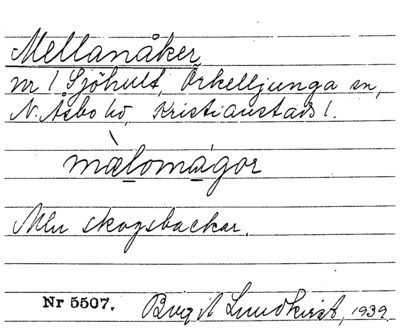 Mellanåker
nr 1 Sjöhult, Örkelljunga sn,
N. Åsbo hd, Kristianstads l.
màlomágor
skogsbackar.
Nr 5507. Birgit Lundkvist, 1939